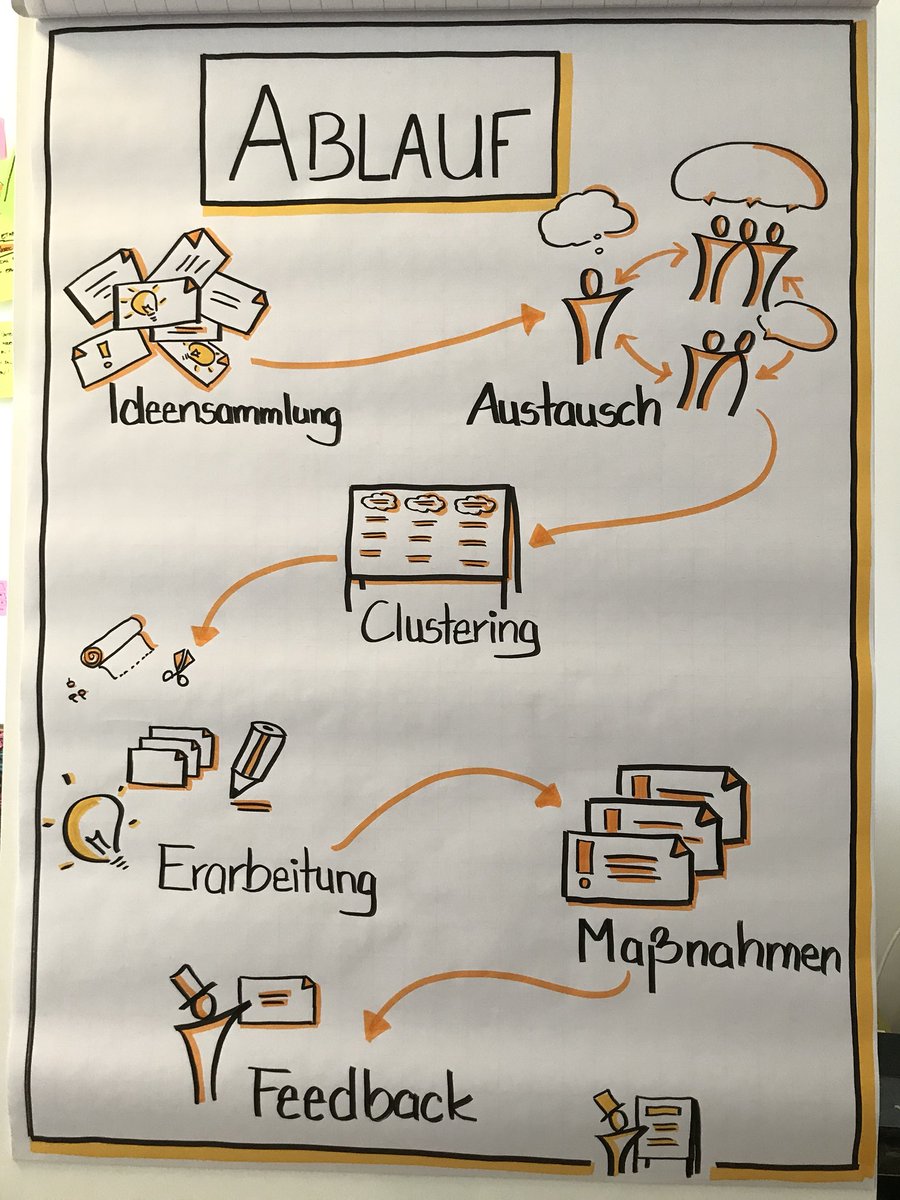 ABLAUF
Ideensammlung
Austausch
Clustering
Erarbeitung
Maßnahmen
Feedback